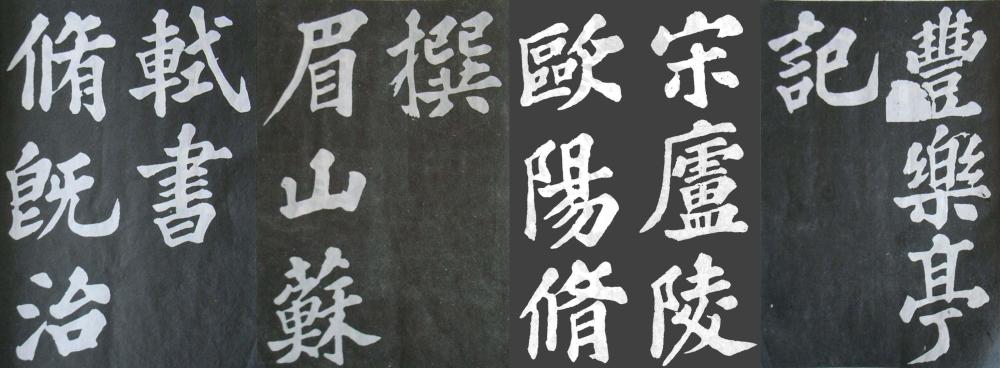 豐樂亭
記
宋廬陵
歐陽脩
撰
眉山蘇
軾書
脩既治